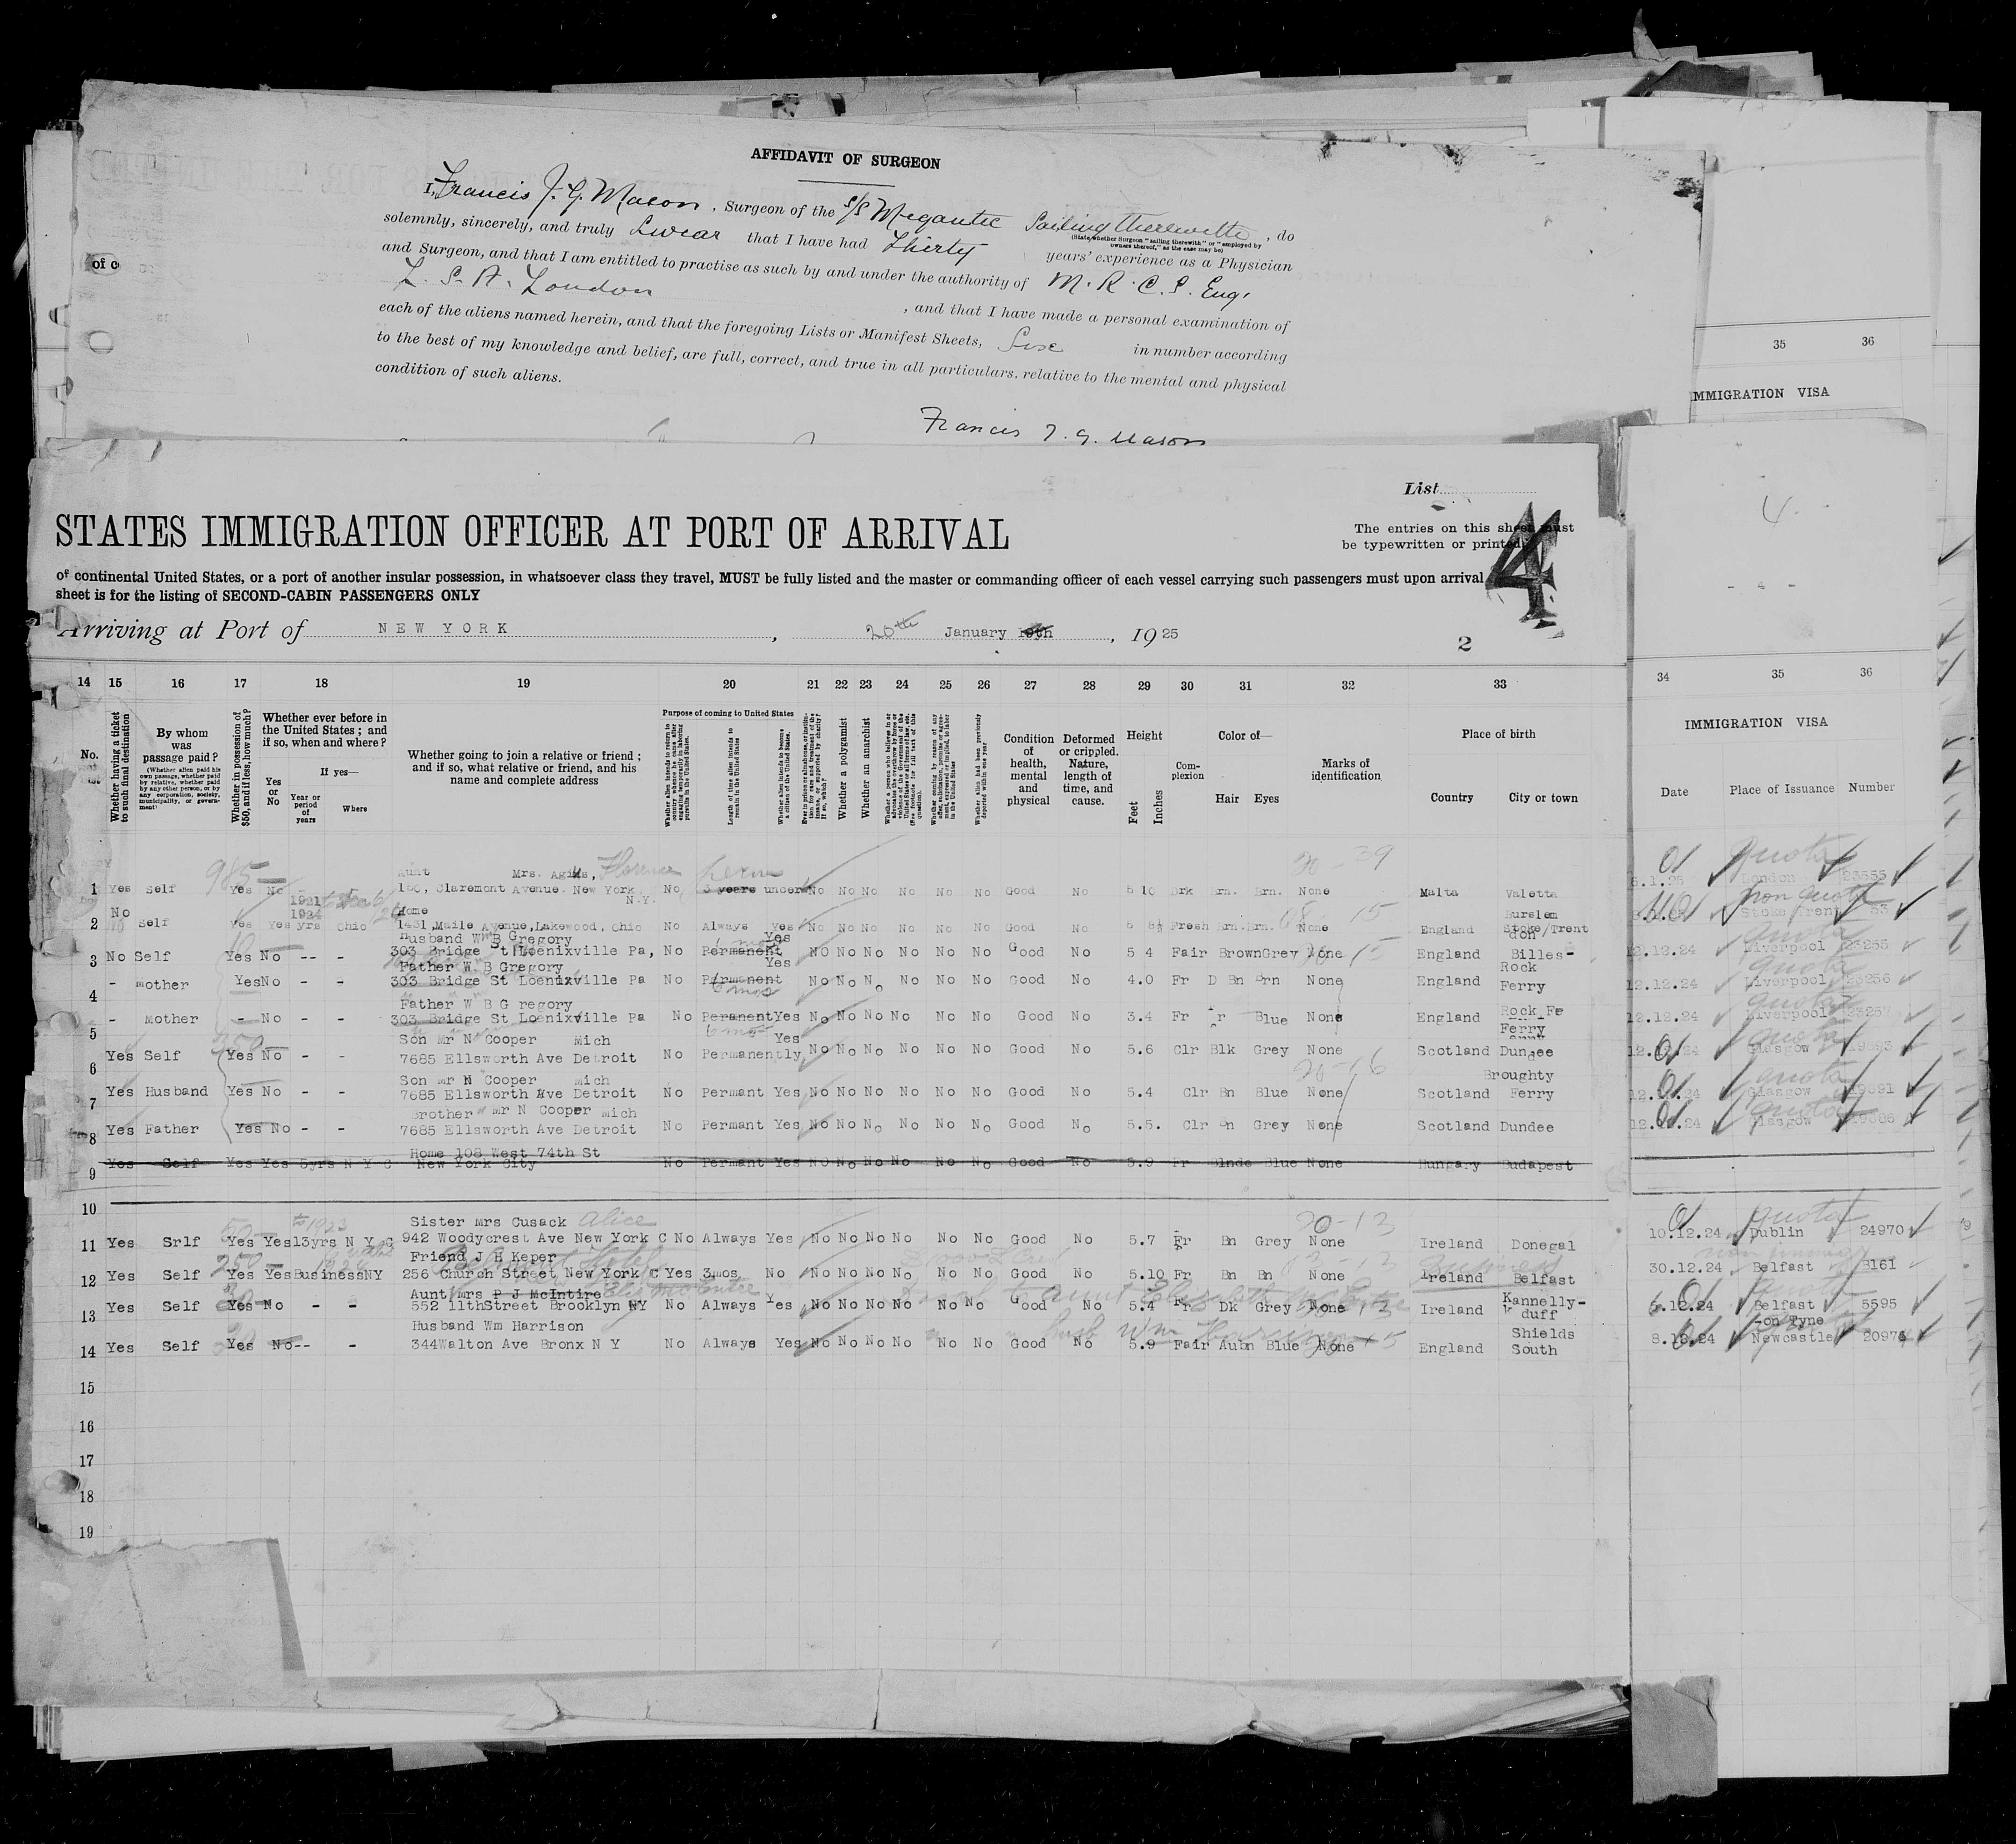 AFFIDAVIT OF SURGEON
I, Francis J. G. Mason, Surgeon of the S/S Megantic Sailing therewith, do
(State whether Surgeon "sailing therewith" or "employed by owners thereof," as the case may be)
solemnly, sincerely, and truly Swear that I have had Thirty years' experience as a Physician
and Surgeon, and that I am entitled to practise as such by and under the authority of M.R.C.S. Eng.
L.S.A. London, and that I have made a personal examination of
each of the aliens named herein, and that the foregoing Lists or Manifest Sheets, in number according
to the best of my knowledge and belief, are full, correct, and true in all particulars, relative to the mental and physical
condition of such aliens.
Francis J. G. Mason
of c
35 36
MMIGRATION VISA
List
4
STATES IMMIGRATION OFFICER AT PORT OF ARRIVAL
The entries on this sheet must
be typewritten or printed
4
of continental United States, or a port of another insular possession, in whatsoever class they travel, MUST be fully listed and the master or commanding officer of each vessel carrying such passengers must upon arrival
sheet is for the listing of SECOND-CABIN PASSENGERS ONLY
- 4 -
Arriving at Port of NEW YORK, 20th January 19th, 1925
2
14 15 16 17 18 19 20 21 22 23 24 25 26 27 28 29 30 31 32 33 34 35 36
No.
Whether having a ticket to such final destination
By whom was passage paid?
(Whether alien paid his own passage, whether paid by relative, whether paid by any other person, or by any corporation, society, municipality, or government)
Whether in possession of $50, and if less, how much?
Whether ever before in the United States; and if so, when and where?
Yes or No
If yes—
Year or period of years
Where
Whether going to join a relative or friend; and if so, what relative or friend, and his name and complete address
Purpose of coming to United States
Length of time alien intends to remain in the United States
Whether alien intends to become a citizen of the United States.
Whether a polygamist
Whether an anarchist
Condition of health, mental and physical
Deformed or crippled. Nature, length of time, and cause.
Height
Feet Inches
Complexion
Color of—
Hair Eyes
Marks of identification
Place of birth
Country City or town
IMMIGRATION VISA
Date Place of Issuance Number
985 Aunt Mrs. Florence 20-39 Quota
1 Yes Self Yes No 180, Claremont Avenue. New York. N.Y. No 3 years No No No No No No Good No 5 10 Drk Brn. Brn. None Malta Valetta 6.1.25 London 23555
No 1921 1924 Home 15 Burslem Non Quota
2 Self Yes Yes yrs Ohio 1431, Maile Avenue, Lakewood, Ohio No Always Yes No No No No No No Good No 5 6½ Fresh Brn. Brn. None England Stoke/Trent Stoke/Trent 53
Husband W B Gregory Yes don Quota
3 No Self Yes No -- - 303 Bridge St Loenixville Pa, No Permanent No No No No No No Good No 5 4 Fair Brown Grey None England Billes- 12.12.24 Liverpool 23255
Father W B Gregory Yes Rock Quota
4 - mother Yes No - - 303 Bridge St Loenixville Pa No Prmanent 6 mos No No No No No No Good No 4.0 Fr D Bn Brn None England Ferry 12.12.24 Liverpool 23256
Father W B Gregory Quota
5 - Mother - No - - 303 Bridge St Loenixville Pa No Peranent Yes No No No No No No Good No 3.4 Fr Fr Blue None England Rock Fe Ferry 12.12.24 Liverpool
350 Son Mr N Cooper Mich 6 mos Yes Quota
6 Yes Self Yes No - - 7685 Ellsworth Ave Detroit No Permanently No No No No No No Good No 5.6 Clr Blk Grey None Scotland Dundee 12.12.24 Glasgow
Son mr N Cooper mich 20-16 Broughty Quota
7 Yes Husband Yes No - - 7685 Ellsworth Ave Detroit No Permant Yes No No No No No No Good No 5.4 Clr Bn Blue None Scotland Ferry 12.12.24 Glasgow 19891
Brother mr N Cooper mich Quota
8 Yes Father Yes No - - 7685 Ellsworth Ave Detroit No Permant Yes No No No No No No Good No 5.5. Clr Bn Grey None Scotland Dundee 12.12.24 Glasgow
Home 108 West 74th St
9 Yes Self Yes Yes 5yrs N Y C New York City No Permant Yes No No No No No No Good No 5.9 Fr Blnde Blue None Hungary Budapest
10
50 to 1923 Sister mrs Cusack Alice 20-13 Quota
11 Yes Srlf Yes Yes 13yrs N Y C 942 Woodycrest Ave New York C No Always Yes No No No No No No Good No 5.7 Fr Bn Grey None Ireland Donegal 10.12.24 Dublin 24970
250 1924 Friend J H Keper
12 Yes Self Yes Yes Business NY 256 Church Street New York C Yes 3mos No No No No No No No Good No 5.10 Fr Bn Bn None Ireland Belfast 30.12.24 Belfast 3161
Aunt mrs P J McIntire Kannelly- Quota
13 Yes Self Yes No - - 552 11thStreet Brooklyn NY No Always Yes No No No No No No Good No 5.4 Fr Dk Grey None Ireland duff 5.12.24 Belfast 5595
Husband Wm Harrison Shields -on Tyne
14 Yes Self Yes No-- - 344Walton Ave Bronx N Y No Always Yes No No No No No No Good No 5.9 Fair Aubn Blue None England South 8.12.24 Newcastle 20976
15
16
17
18
19